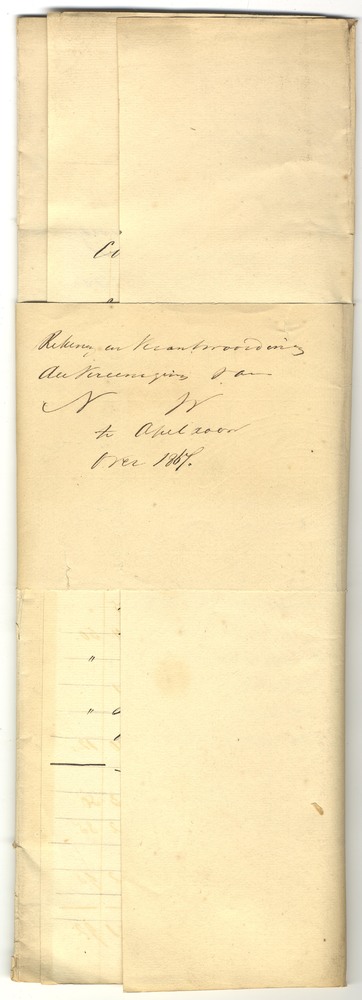 Co
Rekening en Verantwoording
der Vereeniging van
N W
te Apeldoorn
over 1867.